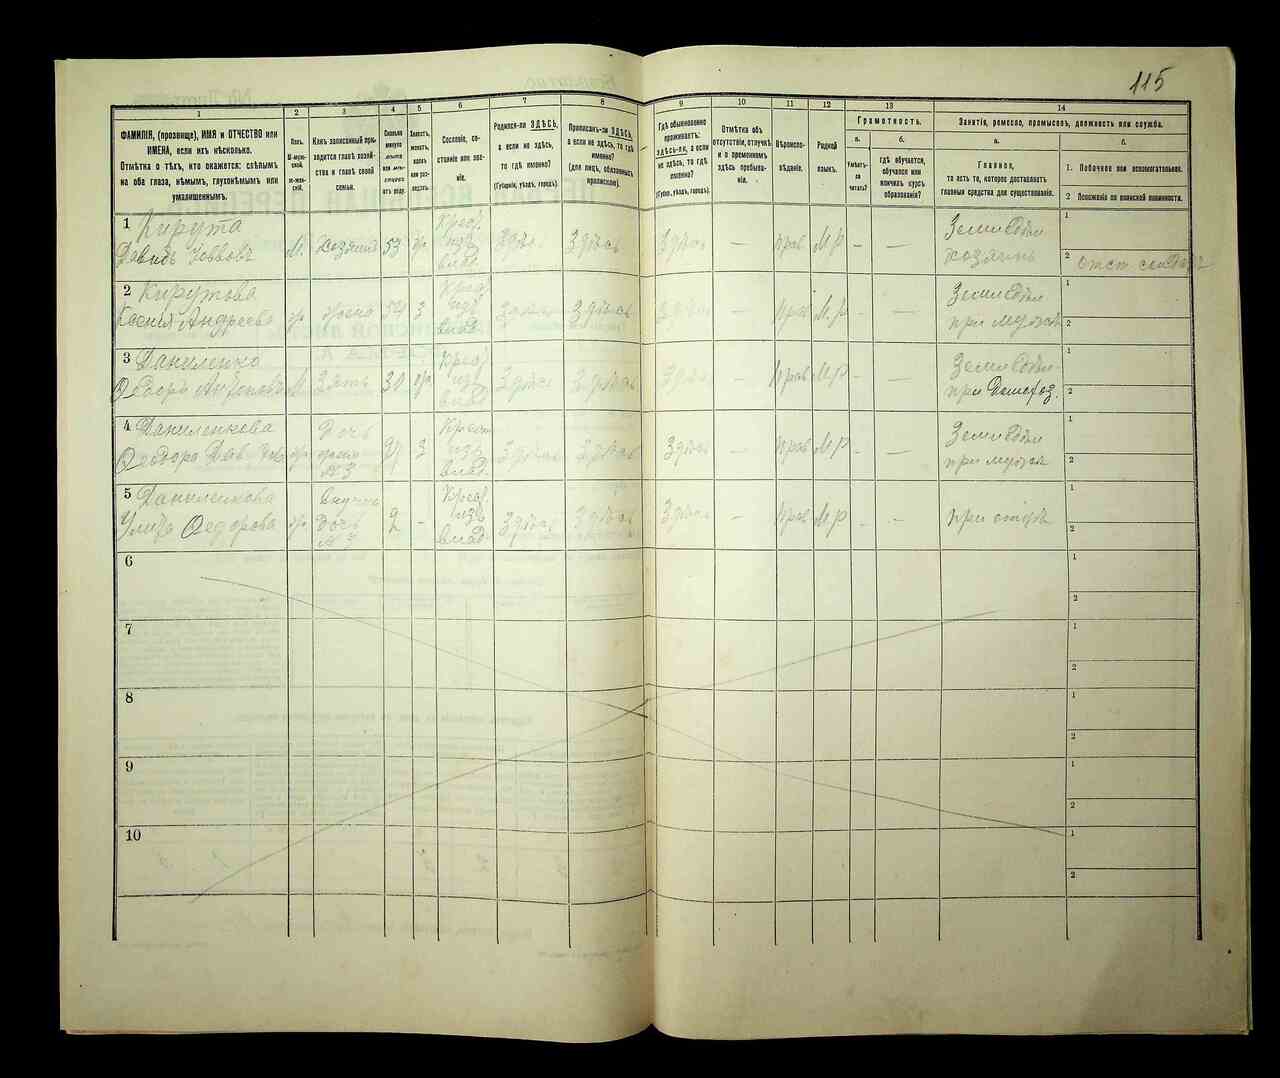 115
1
2
3
4
5
6
7
8
9
10
11
12
13
14
ФАМИЛІЯ, (прозвище), ИМЯ и ОТЧЕСТВО или
ИМЕНА, если ихъ нѣсколько.
Отмѣтка о тѣхъ, кто окажется: слѣпымъ
на оба глаза, нѣмымъ, глухонѣмымъ или
умалишеннымъ.
Полъ.
М-муж-
ской.
Ж-жен-
скій.
Какъ записанный при-
ходится главѣ хозяй-
ства и главѣ своей
семьи.
Сколько
минуло
лѣтъ
или мѣс-
яцевъ
отъ роду.
Холостъ,
женатъ,
вдовъ
или раз-
веденъ.
Сословіе, со-
стояніе или зва-
ніе.
Родился-ли ЗДѢСЬ,
а если не здѣсь,
то гдѣ именно?
(Губернія, уѣздъ, городъ).
Приписанъ-ли ЗДѢСЬ,
а если не здѣсь, то гдѣ
именно?
(для лицъ, обязанныхъ
припискою).
Гдѣ обыкновенно
проживаетъ:
ЗДѢСЬ-ЛИ, а если
не здѣсь, то гдѣ
именно?
(Губернія, уѣздъ, городъ).
Отмѣтка объ
отсутствіи, отлучкѣ
и о временномъ
здѣсь пребыва-
ніи.
Вѣроиспо-
вѣданіе.
Родной
языкъ.
Грамотность.
а.
Умѣетъ-
ли
читать?
б.
гдѣ обучается,
обучался или
кончилъ курсъ
образованія?
Занятіе, ремесло, промыселъ, должность или служба.
а.
Главное,
то есть то, которое доставляетъ
главныя средства для существованія.
б.
1. Побочное или вспомогательное.
2 Положеніе по воинской повинности.
1 Кирута
Давидъ Іеввовъ М. хозяинъ 53 Крест. изъ влад. Здѣсь Здѣсь Здѣсь — Прав М.Р — — Земледѣл. хозяинъ
1
2
2 Кирутова
Ксенія Андреева ж жена 54 3 Крест. изъ влад. Здѣсь Здѣсь Здѣсь — Прав М.Р — — Земледѣл. при мужѣ
1
2
3 Даниленко
Зять 30 Крест. изъ влад. Здѣсь Здѣсь Здѣсь — Прав М.Р — — Земледѣл. при Домохоз.
1
2
4 Даниленкова
Ѳедора Дав ж Дочь жена №3 3 Крест. изъ влад. Здѣсь Здѣсь Здѣсь — Прав М.Р — — Земледѣл. при мужѣ
1
2
5 Даниленкова
Ѳедорова ж Внучка Дочь №3 - Крест. изъ влад. Здѣсь Здѣсь Здѣсь — Прав М.Р — — при отцѣ
1
2
6
1
2
7
1
2
8
1
2
9
1
2
10
1
2